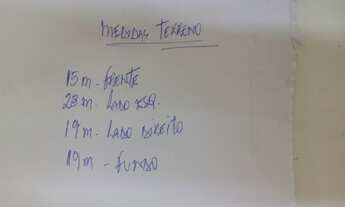 MEDIDAS TERRENO
15m - FRENTE
23m - LADO ESQ.
19m - LADO DIREITO
19m - FUNDO